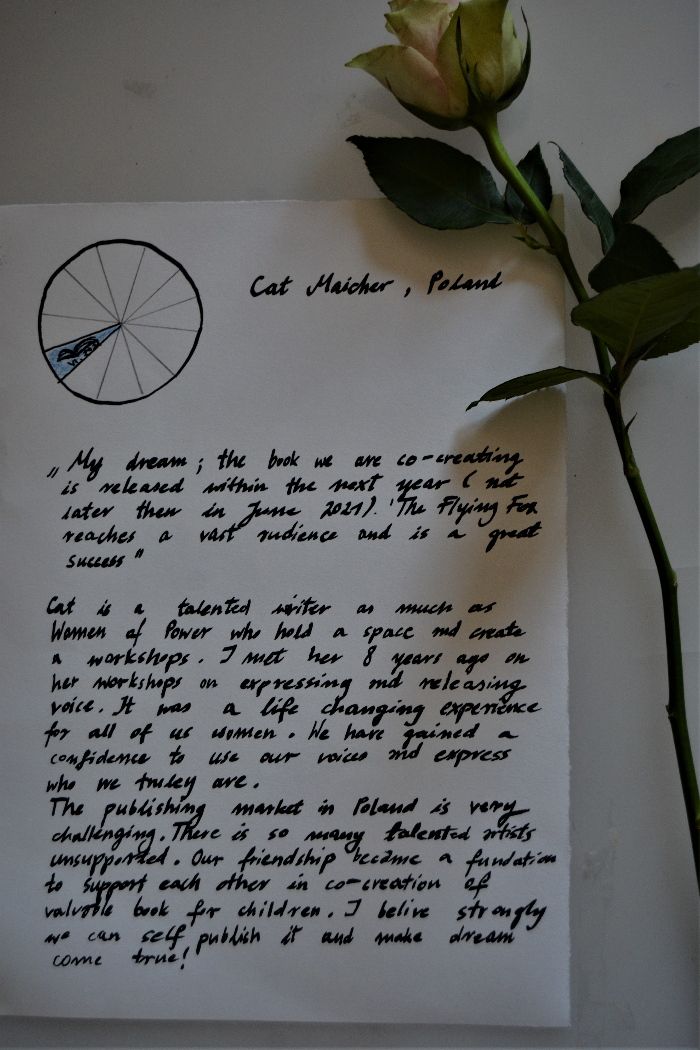 Cat Maicher, Poland
VI.2021
„My dream; the book we are co-creating
is released within the next year (not
later then in June 2021). 'The Flying Fox
reaches a vast audience and is a great
success"
Cat is a talented writer as much as
Women of Power who hold a space and create
a workshops. I met her 8 years ago on
her workshops on expressing and releasing
voice. It was a life changing experience
for all of us women. We have gained a
confidence to use our voices and express
who we truley are.
The publishing market in Poland is very
challenging. There is so many talented artists
unsupported. Our friendship became a fundation
to support each other in co-creation of
valuable book for children. I belive strongly
we can self publish it and make dream
come true!